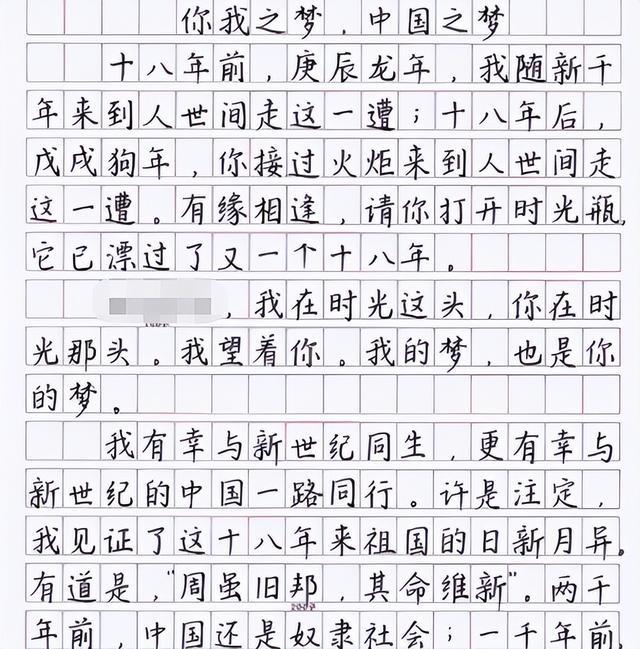 你我之梦，中国之梦
十八年前，庚辰龙年，我随新千
年来到人世间走这一遭；十八年后，
戊戌狗年，你接过火炬来到人世间走
这一遭。有缘相逢，请你打开时光瓶，
它已漂过了又一个十八年。
，我在时光这头，你在时
光那头。我望着你。我的梦，也是你
的梦。
我有幸与新世纪同生，更有幸与
新世纪的中国一路同行。许是注定，
我见证了这十八年来祖国的日新月异。
有道是，“周虽旧邦，其命维新”。两千
年前，中国还是奴隶社会；一千年前，